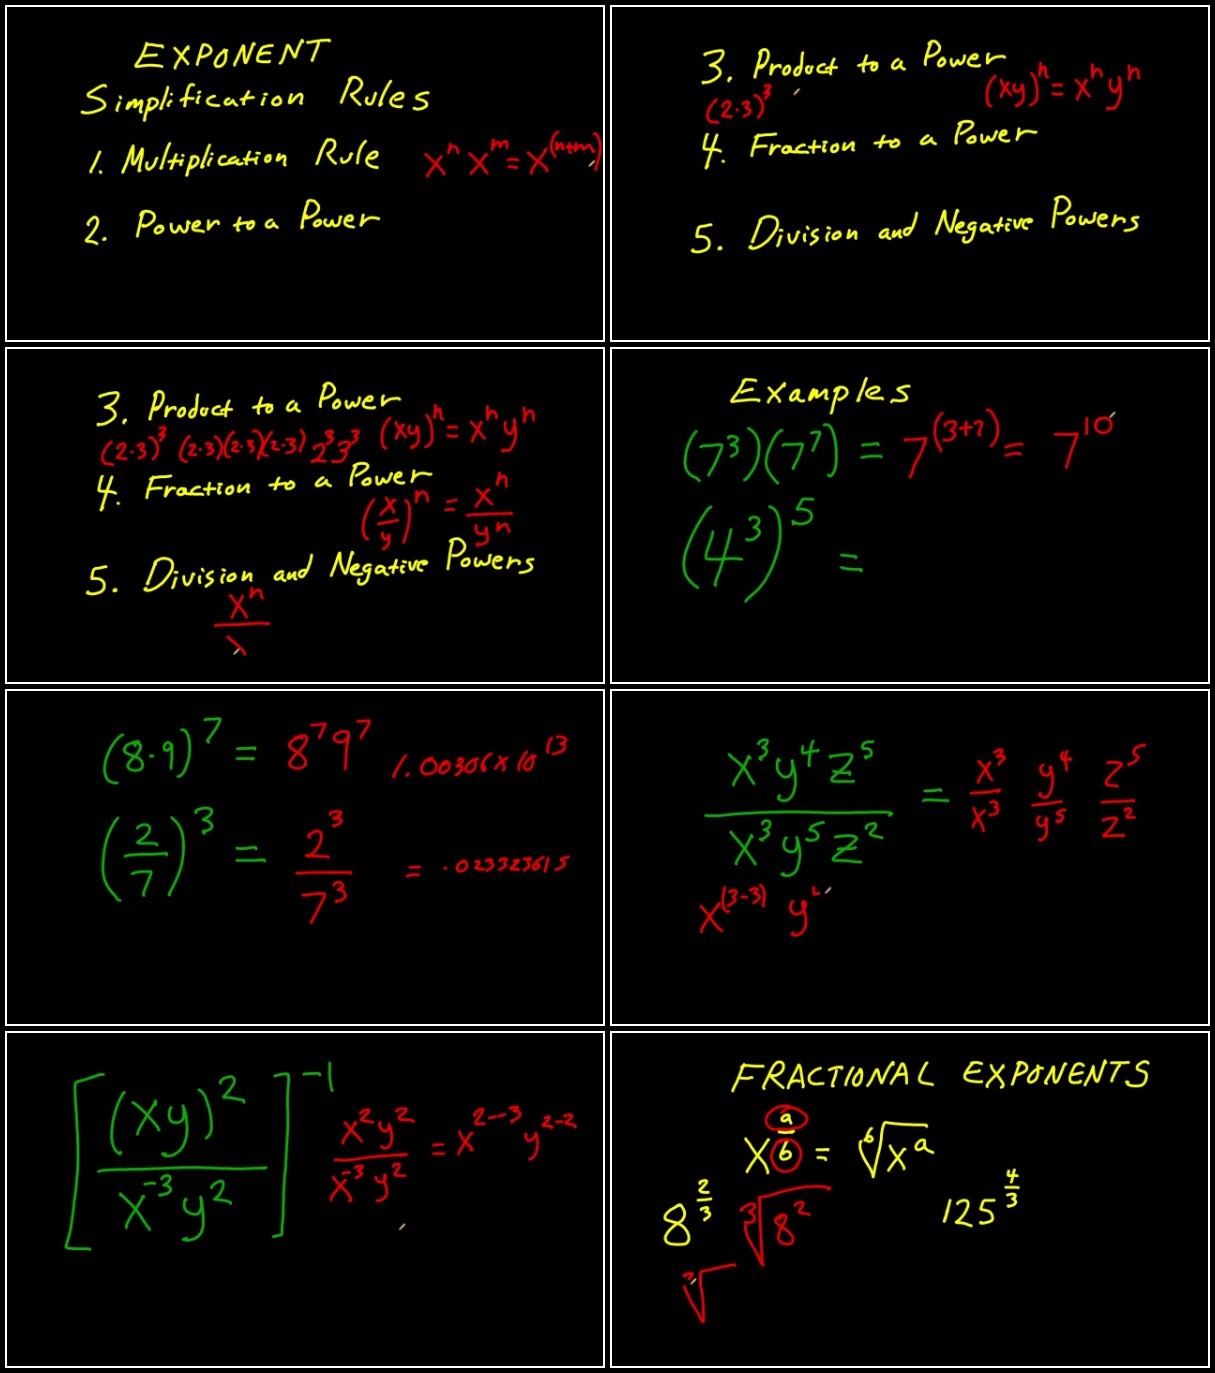 EXPONENT
Simplification Rules
1. Multiplication Rule x^n x^m = x^(n+m)
2. Power to a Power
3. Product to a Power
(2·3)^3 (xy)^n = x^n y^n
4. Fraction to a Power
5. Division and Negative Powers
3. Product to a Power
(2·3)^3 (2·3)(2·3)(2·3) 2^3 3^3 (xy)^n = x^n y^n
4. Fraction to a Power
(x/y)^n = x^n/y^n
5. Division and Negative Powers
x^n
Examples
(7^3)(7^7) = 7^(3+7) = 7^10
(4^3)^5 =
(8·9)^7 = 8^7 9^7 1.00306 x 10^13
(2/7)^3 = 2^3/7^3 = .023323615
x^3 y^4 z^5 / x^3 y^5 z^2 = x^3/x^3 y^4/y^5 z^5/z^2
x^(3-3) y
[(xy)^2 / x^-3 y^2]^-1 x^2 y^2 / x^-3 y^2 = x^2--3 y^2-2
FRACTIONAL EXPONENTS
x^a/6 = 6√x^a
8^2/3 3√8^2 125^4/3
3√